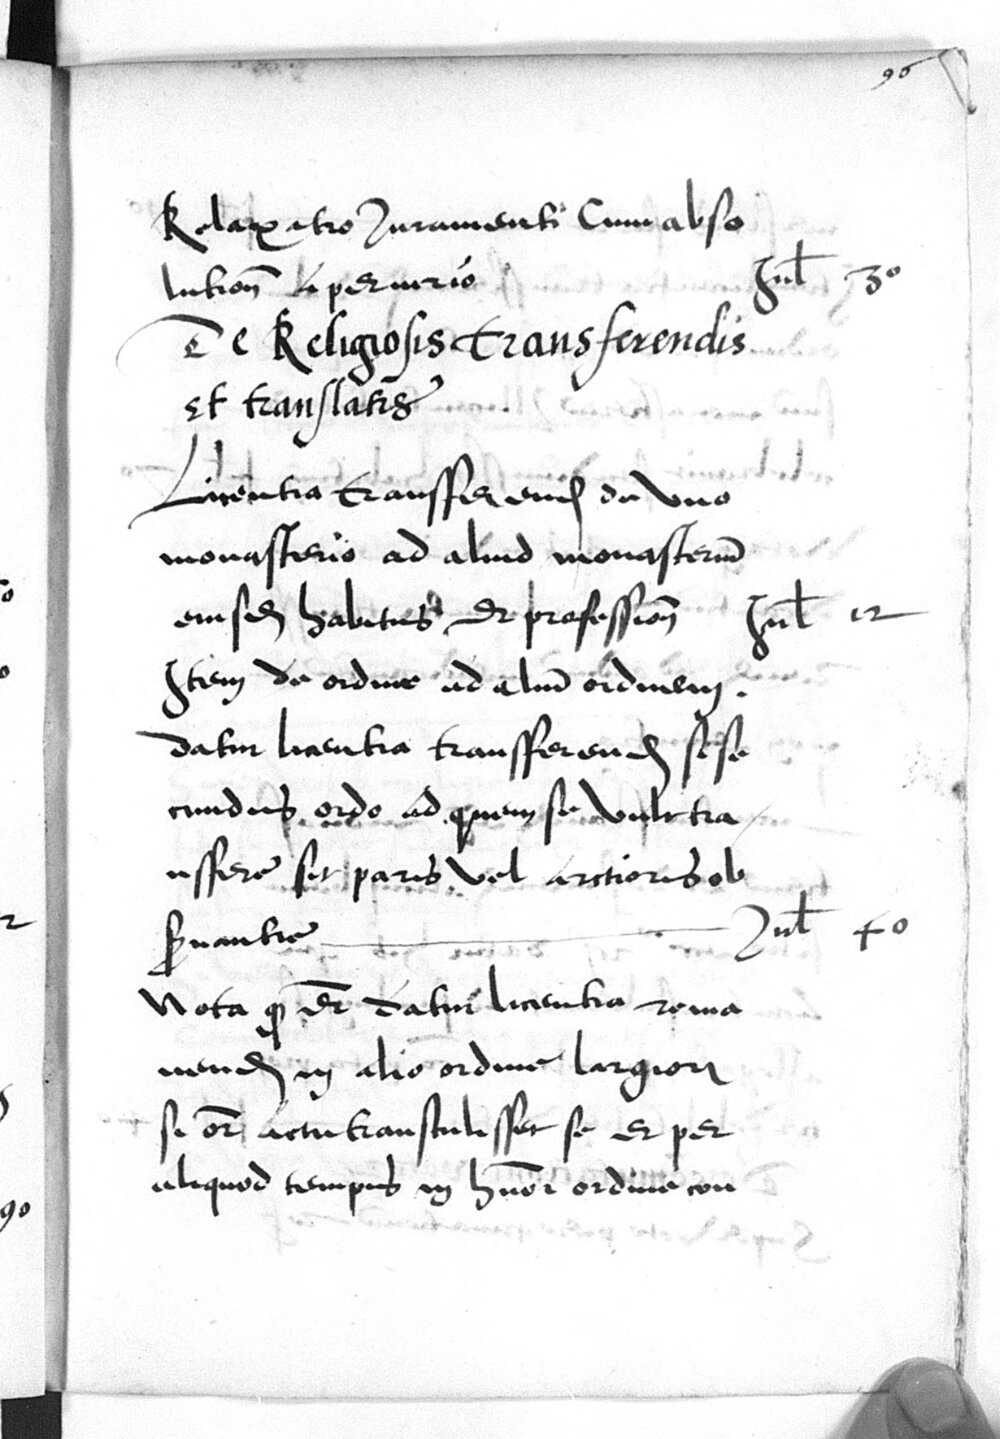 96
Relaxatio Juramenti Cum abso
lution̄ a periurio Jul 30
De Religiosis Transferendis
et translatis
Licentia transfferend de vno
monasterio ad aliud monasteriū
eiusd habitus et professioñ Jul 12
Item de ordine ad aliū ordinem.
datur licentia transfferend si se
cundus ordo ad quem se vult tra
nsffere sit paris vel arctioris ob
seruantie Jul 40
Nota q et datur licentia rema
nend in alio ordine largiori
si or actu transtulisset se et per
aliquod tempus in hmōi ordine con